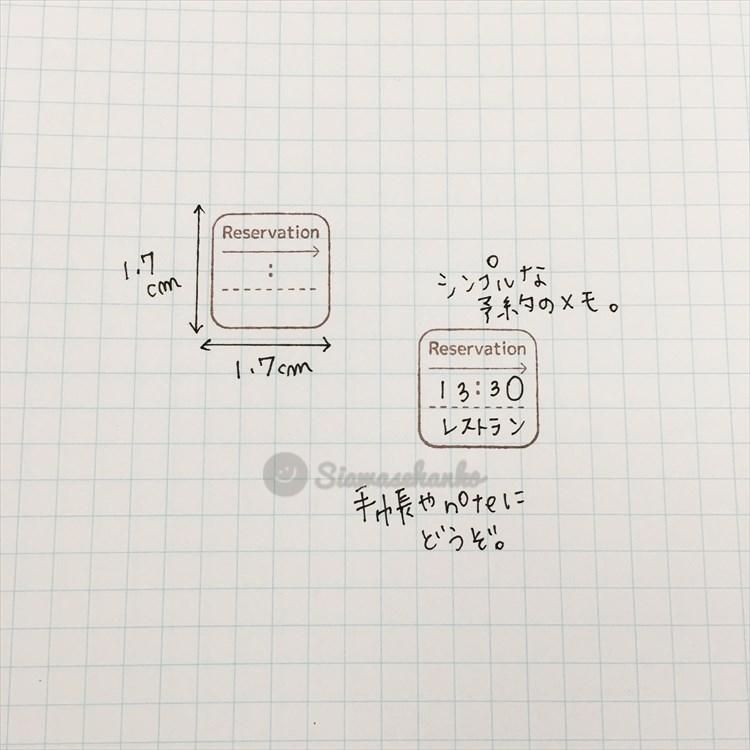 Reservation
:
1.7
cm
1.7cm
シンプルな
予約のメモ。
Reservation
13:30
レストラン
Siawasehanko
手帳やnoteに
どうぞ。